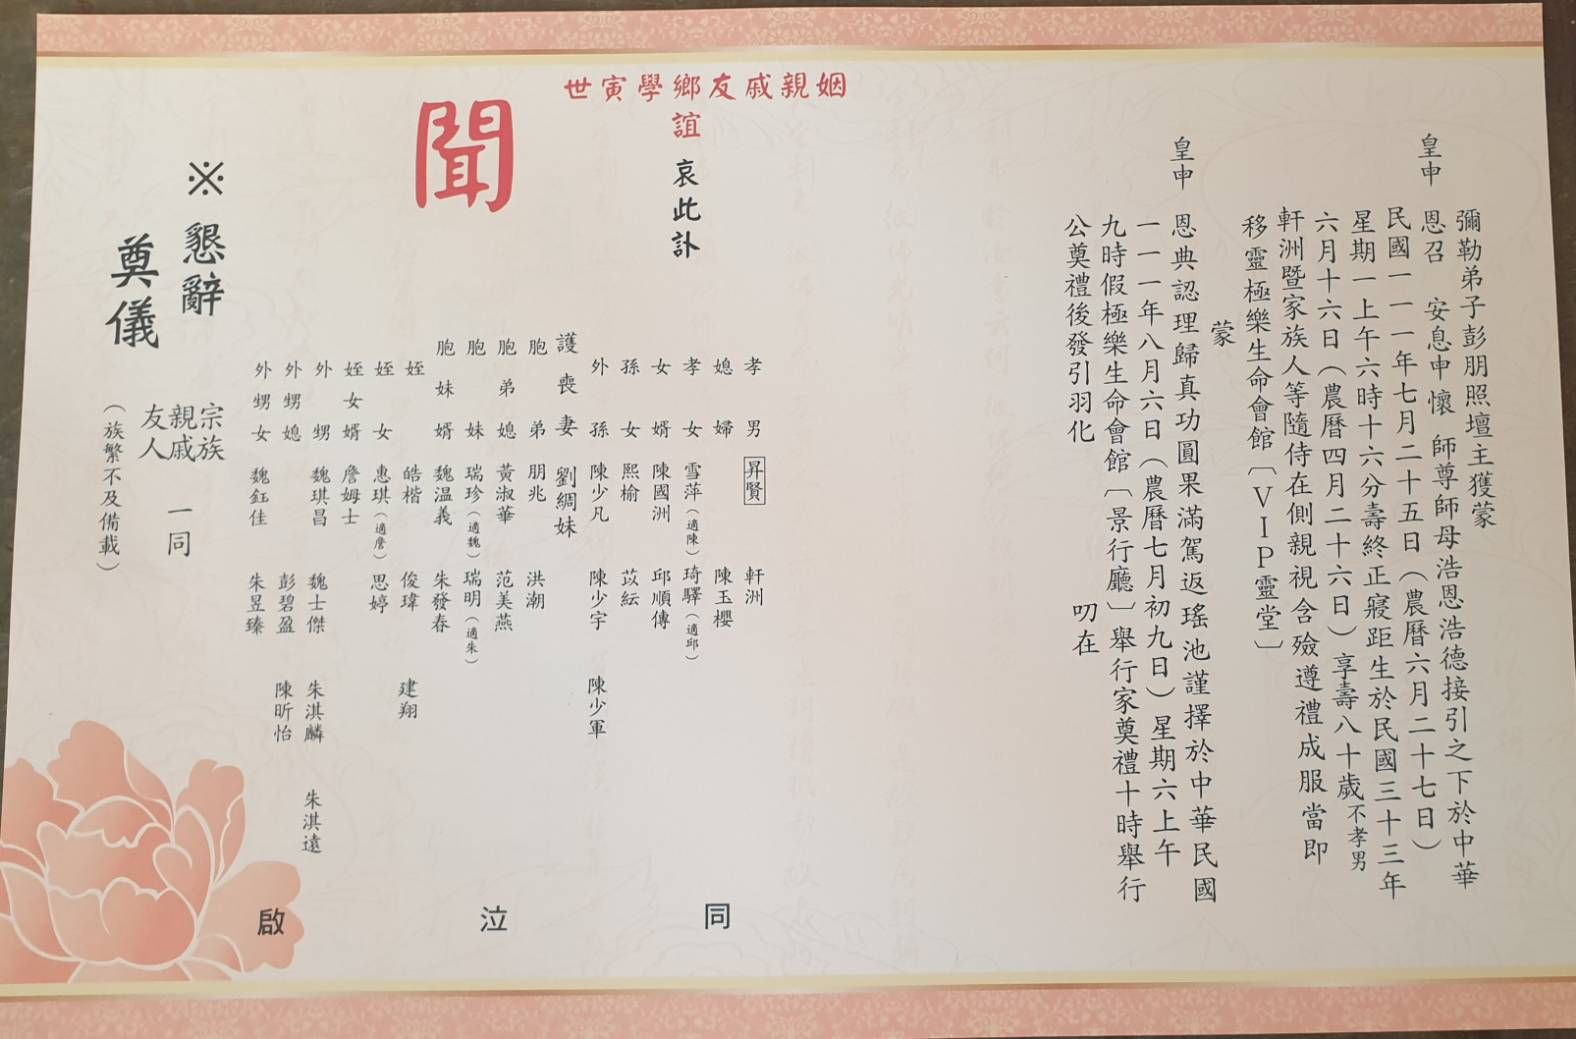 彌勒弟子彭朋照壇主獲蒙
皇申 恩召 安息申懷 師尊師母浩恩浩德接引之下於中華
民國一一一年七月二十五日（農曆六月二十七日）
星期一上午六時十六分壽終正寢距生於民國三十三年
六月十六日（農曆四月二十六日）享壽八十歲不孝男
軒洲暨家族人等隨侍在側親視含殮遵禮成服當即
移靈極樂生命會館〔VIP靈堂〕
蒙
皇申 恩典認理歸真功圓果滿駕返瑤池謹擇於中華民國
一一一年八月六日（農曆七月初九日）星期六上午
九時假極樂生命會館〔景行廳〕舉行家奠禮十時舉行
公奠禮後發引羽化 叨在
姻親戚友鄉學寅世
誼 哀此訃
聞
孝男 昇賢 軒洲
媳婦 陳玉櫻
孝女 雪萍（適陳） 琦驛（適邱）
女婿 陳國洲 邱順傳
孫女 熙榆 苡紜
外孫 陳少凡 陳少宇 陳少軍
護喪妻 劉綢妹
胞弟 朋兆 洪潮
胞弟媳 黃淑華 范美燕
胞妹 瑞珍（適魏） 瑞明（適朱）
胞妹婿 魏温義 朱發春
姪 皓楷 俊瑋 建翔
姪女 惠琪（適詹） 思婷
姪女婿 詹姆士
外甥 魏琪昌 魏士傑 朱淇麟 朱淇遠
外甥媳 彭碧盈 陳昕怡
外甥女 魏鈺佳 朱昱臻
同 泣 啟
宗族
親戚
友人
一同
（族繁不及備載）
※懇辭
奠儀